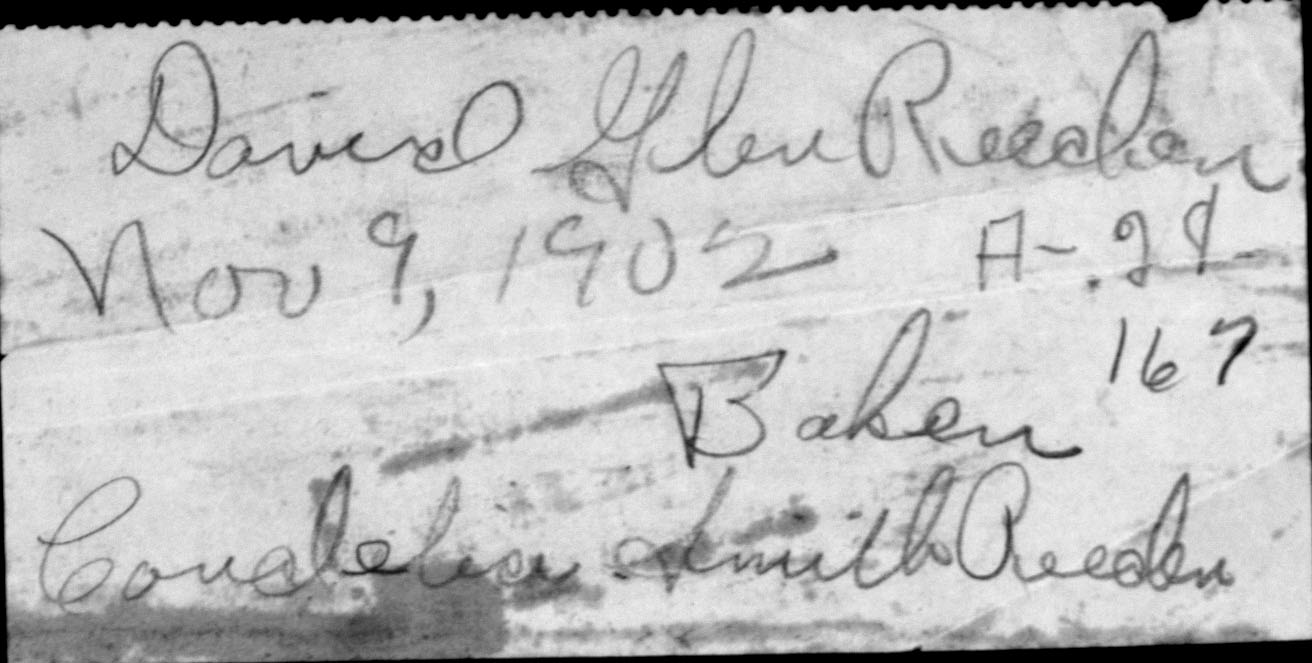 David Glen Reeder
Nov 9, 1902 A-.28
167
Baker
Cordelia Smith Reeder